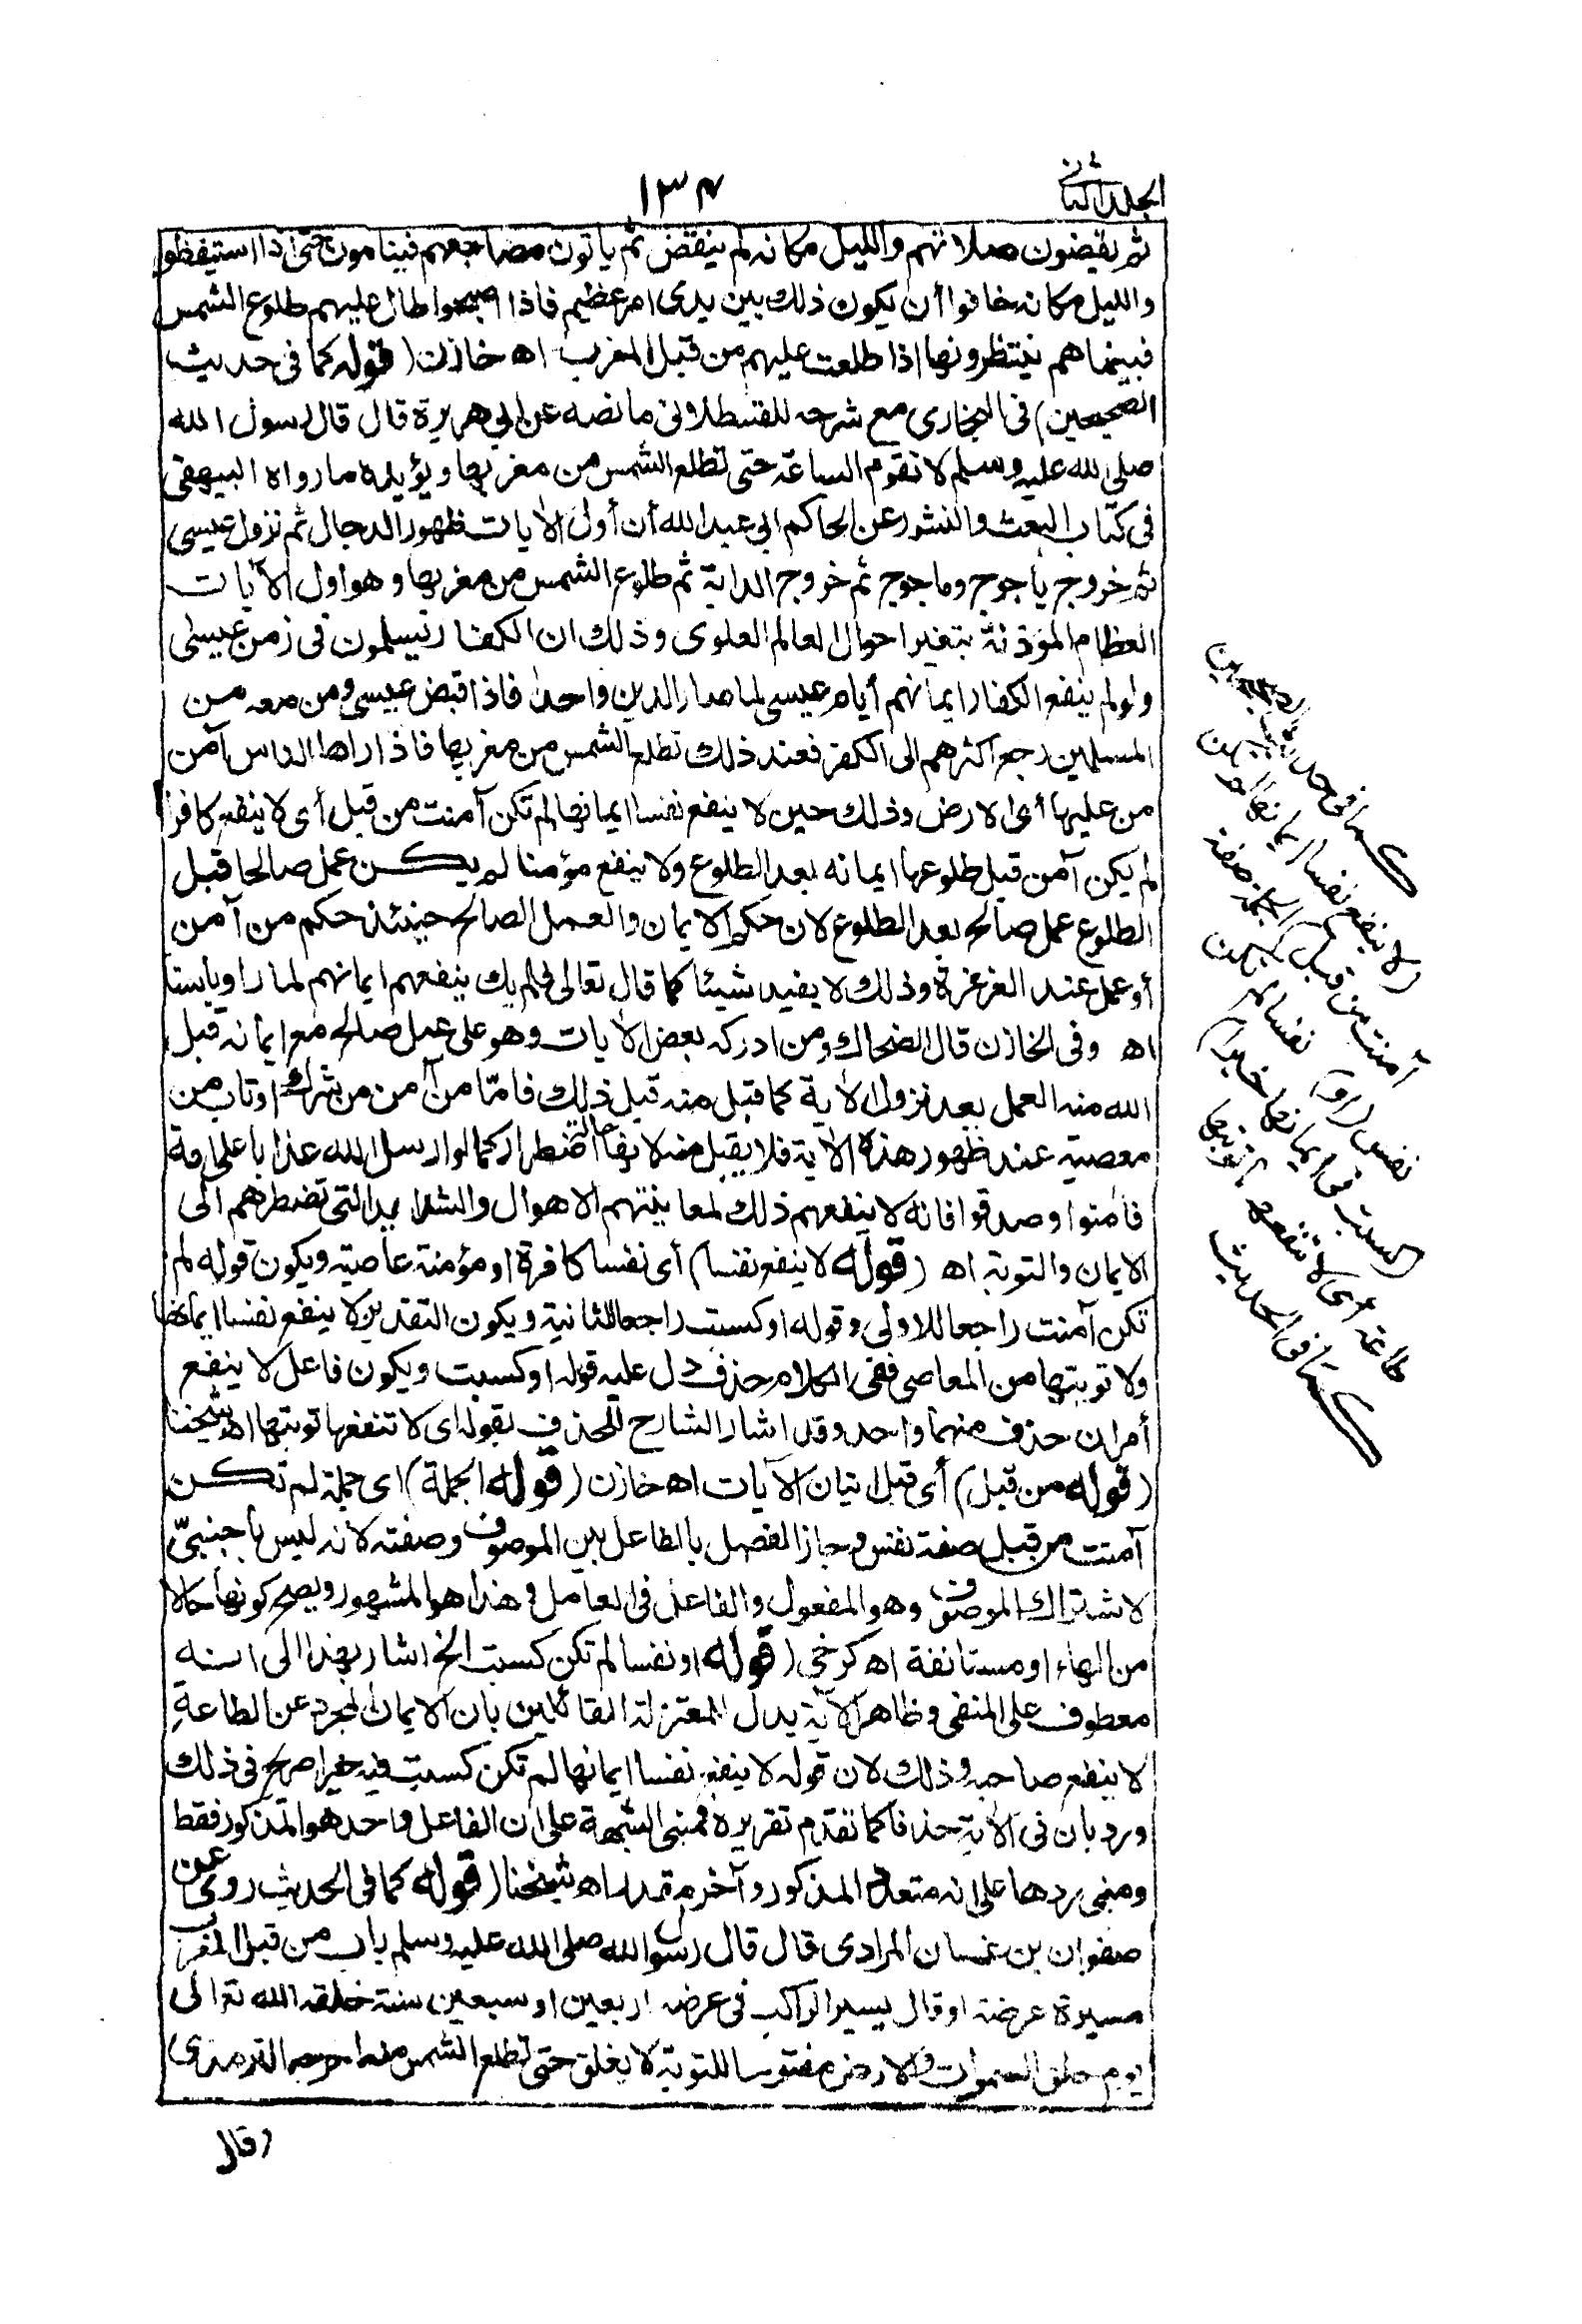 الجلد الثانى
١٣٤
ثم يقضون صلاتهم والليل مكانه لم ينقض ثم يأتون مضاجعهم فينامون حتى اذا استيقظوا
والليل مكانه خافوا أن يكون ذلك بين يدى امر عظيم فاذا اصبحوا طال عليهم طلوع الشمس
فبينما هم ينتظرونها اذا طلعت عليهم من قبل المغرب اه خازن (قوله كما فى حديث
الصحيحين) فى البخارى مع شرحه للقسطلانى ما نصه عن ابى هريرة قال قال رسول الله
صلى الله عليه وسلم لا تقوم الساعة حتى تطلع الشمس من مغربها ويؤيده ما رواه البيهقى
فى كتاب البعث والنشور عن الحاكم ابى عبد الله أن أول الآيات ظهور الدجال ثم نزول عيسى
ثم خروج ياجوج وماجوج ثم خروج الدابة ثم طلوع الشمس من مغربها وهو اول الآيات
العظام المؤذنة بتغير احوال العالم العلوى وذلك ان الكفار يسلمون فى زمن عيسى
ولو لم ينفع الكفار ايمانهم أيام عيسى لما صار الدين واحدا فاذا قبض عيسى ومن معه من
المسلمين رجع اكثرهم الى الكفر فعند ذلك تطلع الشمس من مغربها فاذا راها الناس آمن
من عليها أى الارض وذلك حين لا ينفع نفسا ايمانها لم تكن آمنت من قبل أى لا ينفع كافرا
لم يكن آمن قبل طلوعها ايمانه بعد الطلوع ولا ينفع مؤمنا لم يكن عمل صالحا قبل
الطلوع عمل صالح بعد الطلوع لان حكم الايمان والعمل الصالح حينئذ حكم من آمن
أو عمل عند الغرغرة وذلك لا يفيد شيئا كما قال تعالى فلم يك ينفعهم ايمانهم لما راو باسنا
اه وفى الخازن قال الضحاك ومن ادركه بعض الآيات وهو على عمل صالح مع ايمانه قبل
الله منه العمل بعد نزول الآية كما قبل منه قبل ذلك فامّا من آمن من شرك او تاب من
معصية عند ظهور هذه الآية فلا يقبل منه لانها حالة اضطرار كما لو ارسل الله عذابا على امة
فآمنوا وصدقوا فانه لا ينفعهم ذلك لمعاينتهم الاهوال والشدايد التى تضطرهم الى
الايمان والتوبة اه (قوله لا ينفع نفسا) أى نفسا كافرة او مؤمنة عاصية ويكون قوله لم
تكن آمنت راجعا للاولى وقوله او كسبت راجعا للثانية ويكون التقدير لا ينفع نفسا ايمانها
ولا توبتها من المعاصى ففى الكلام حذف دل عليه قوله او كسبت ويكون فاعل لا ينفع
أمران حذف منهما واحد وقد اشار الشارح للحذف بقوله اى لا تنفعها توبتها اه شيخنا
(قوله من قبل) أى قبل اتيان الآيات اه خازن (قوله الجملة) اى جملة لم تكن
آمنت من قبل صفة نفس وجاز الفصل بالفاعل بين الموصوف وصفته لانه ليس باجنبىّ
لاشتراك الموصوف وهو المفعول والفاعل فى العامل وهذا هو المشهور ويصح كونها حالا
من الهاء او مستانفة اه كرخى (قوله او نفسا لم تكن كسبت الخ اشار بهذا الى انه
معطوف على المنفى وظاهر الآية يدل للمعتزلة القائلين بان الايمان المجرد عن الطاعة
لا ينفع صاحبه وذلك لان قوله لا ينفع نفسا ايمانها لم تكن كسبت فيه خيرا صريح فى ذلك
ورد بان فى الآية حذفا كما تقدم تقريره فمبنى الشبهة على ان الفاعل واحد هو المذكور فقط
ومبنى ردها على انه متعدد المذكور وآخر مقدر اه شيخنا (قوله كما فى الحديث روى عن
صفوان بن غسان المرادى قال قال رسول الله صلى الله عليه وسلم باب من قبل المغرب
مسيرة عرضه او قال يسير الراكب فى عرضه اربعين او سبعين سنة خلقه الله تعالى
يوم خلق السموات والارض مفتوحا للتوبة لا يغلق حتى تطلع الشمس منه اخرجه الترمذى
كما فى حديث الصحيحين
(لا ينفع نفسا ايمانها لم تكن
آمنت من قبل) الجملة صفة
نفس (او) نفسا لم تكن
(كسبت فى ايمانها خيرا)
طاعة أى لا تنفعها توبتها
كما فى الحديث
وقال